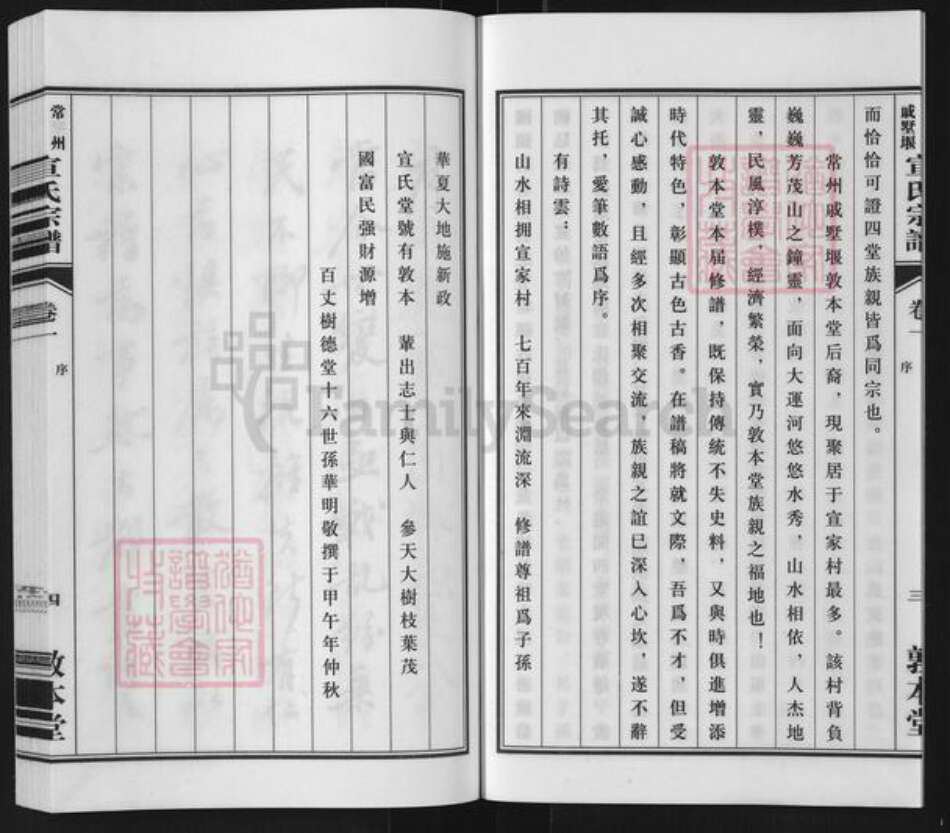 戚墅堰
宣氏宗譜
卷一
序
三
敦本堂
而恰恰可證四堂族親皆爲同宗也。
常州戚墅堰敦本堂后裔，現聚居于宣家村最多。該村背負
巍巍芳茂山之鐘靈，面向大運河悠悠水秀，山水相依，人杰地
靈，民風淳樸，經濟繁榮，實乃敦本堂族親之福地也！
敦本堂本届修譜，既保持傳統不失史料，又與時俱進增添
時代特色，彰顯古色古香。在譜稿將就文際，吾爲不才，但受
誠心感動，且經多次相聚交流，族親之誼已深入心坎，遂不辭
其托，愛筆數語爲序。
有詩雲：
山水相拥宣家村 七百年來淵流深 修譜尊祖爲子孫
華夏大地施新政
宣氏堂號有敦本 輩出志士與仁人 參天大樹枝葉茂
國富民强財源增
百丈樹德堂十六世孫華明敬撰于甲午年仲秋
常州
宣氏宗譜
卷一
序
四
敦本堂
FamilySearch